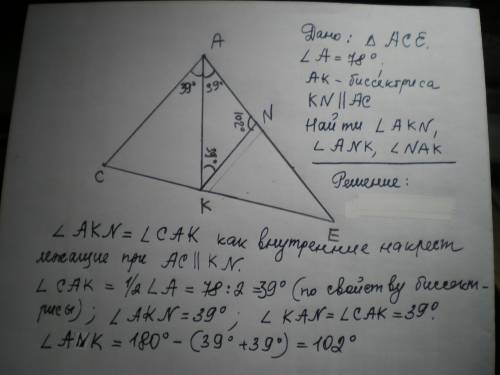 Дано: △ ACE.
∠A = 78°.
AK - биссектриса
KN || AC
Найти ∠AKN,
∠ANK, ∠NAK
Решение:
A
39°
39°
N
102°
39°
C
K
E
∠AKN = ∠CAK как внутренние накрест
лежащие при AC || KN.
∠CAK = 1/2 ∠A = 78:2 = 39° (по свойству биссект-
рисы); ∠AKN = 39°; ∠KAN = ∠CAK = 39°.
∠ANK = 180° - (39° + 39°) = 102°